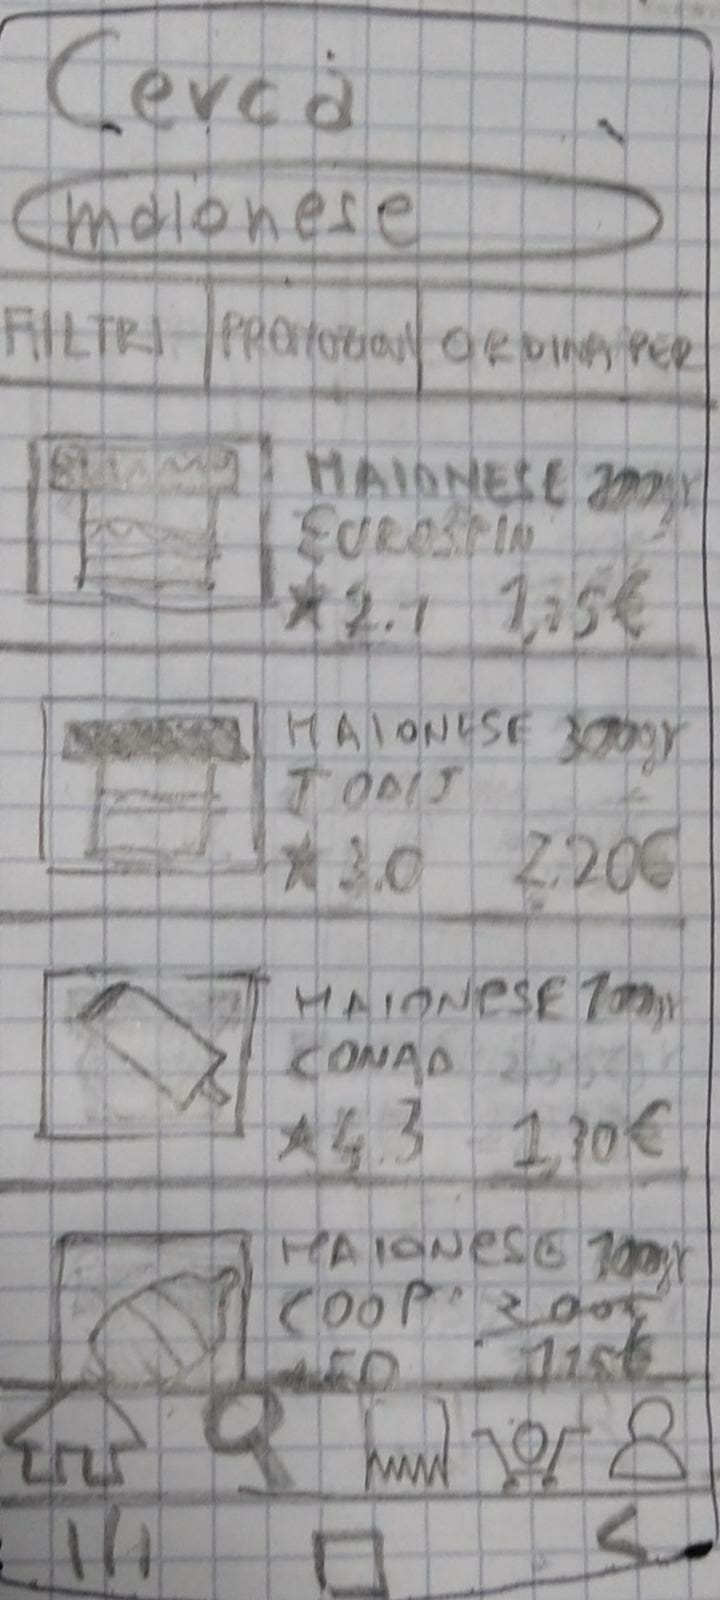 Cerca
maionese
FILTRI PROMOZIONI ORDINA PER
MAIONESE 200gr
EUROSPIN
★ 2.1 1,15€
MAIONESE 300gr
TODIS
★ 3.0 2,20€
MAIONESE 100gr
CONAD
★ 4.3 1,30€
MAIONESE 100gr
COOP
1,15€